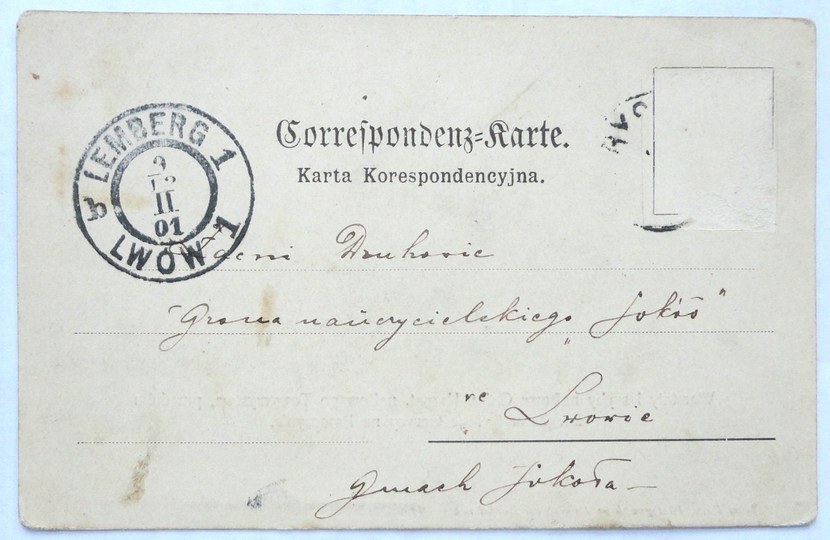 LEMBERG 1
b
II
01
LWÓW 1
Correspondenz-Karte.
Karta Korespondencyjna.
Druhowie
Grona nauczycielskiego „Sokół"
we Lwowie
Gmach Sokoła —